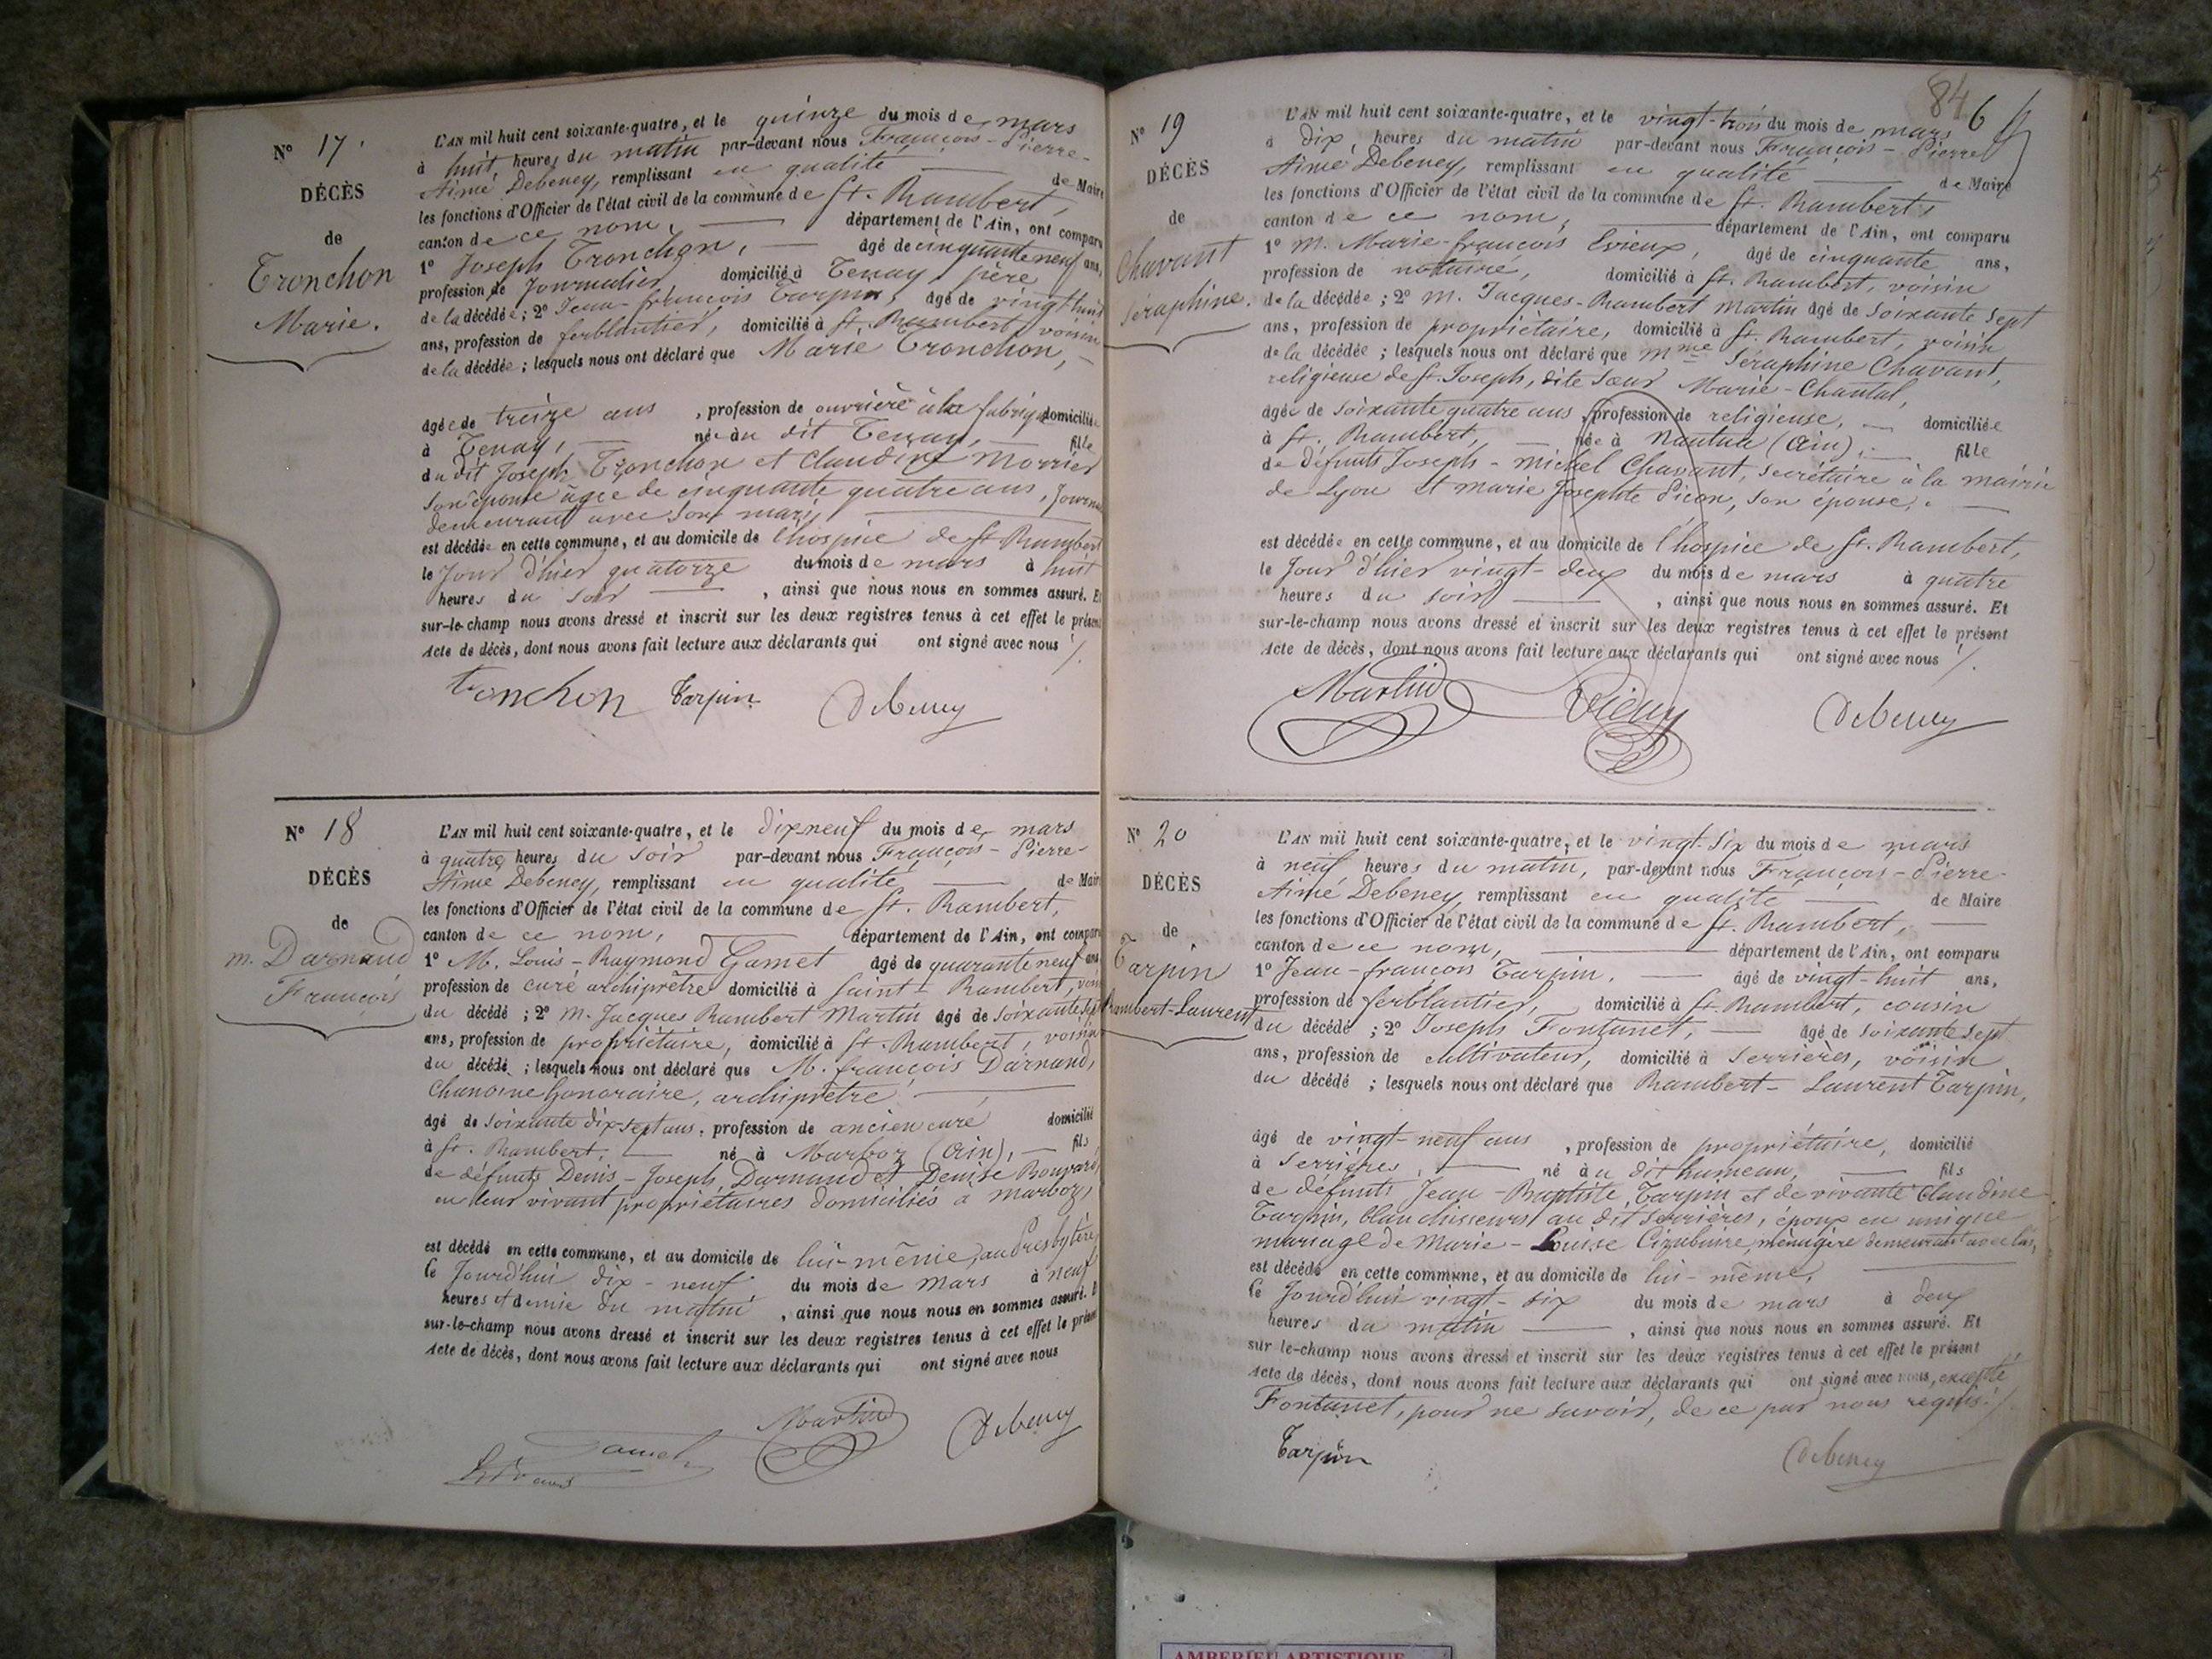 N° 17.
DÉCÈS
de
Tronchon
Marie.
L'AN mil huit cent soixante-quatre, et le quinze du mois de mars
à huit heures du matin par-devant nous François-Pierre-
Aimé Debeney, remplissant en qualité de Maire
les fonctions d'Officier de l'état civil de la commune de St. Rambert,
canton de ce nom, département de l'Ain, ont comparu
1° Joseph Tronchon, âgé de cinquante neuf ans,
profession de Journalier, domicilié à Tenay, père
de la décédée ; 2° Jean-françois Tarpin, âgé de vingt huit
ans, profession de ferblantier, domicilié à St. Rambert, voisin
de la décédée ; lesquels nous ont déclaré que Marie Tronchon,
âgée de treize ans , profession de ouvrière à la fabrique domiciliée
à Tenay, née au dit Tenay, fille
du dit Joseph Tronchon et Claudine Morrier
son épouse âgée de cinquante quatre ans, Journ
demeurant avec son mari,
est décédée en cette commune, et au domicile de l'hospice de St Rambert
le Jour d'hier quatorze du mois de mars à huit
heures du soir , ainsi que nous nous en sommes assuré. Et
sur-le-champ nous avons dressé et inscrit sur les deux registres tenus à cet effet le présent
Acte de décès, dont nous avons fait lecture aux déclarants qui ont signé avec nous /.
tronchon Tarpin Debeney
N° 18
DÉCÈS
de
m. Darnand
François
L'AN mil huit cent soixante-quatre, et le dix neuf du mois de mars
à quatre heures du soir par-devant nous François-Pierre-
Aimé Debeney, remplissant en qualité de Maire
les fonctions d'Officier de l'état civil de la commune de St. Rambert,
canton de ce nom, département de l'Ain, ont comparu
1° M. Louis-Raymond Gamet âgé de quarante neuf ans
profession de curé archiprêtre domicilié à Saint-Rambert, vois
du décédé ; 2° M. Jacques Rambert Martin âgé de soixante sept
ans, profession de propriétaire, domicilié à St. Rambert, voisin
du décédé ; lesquels nous ont déclaré que M. françois Darnand,
Chanoine honoraire, archiprêtre
âgé de soixante dix sept ans, profession de ancien curé domicilié
à St. Rambert, né à Marboz (Ain), fils
de défunts Denis-Joseph Darnand et Denise Bouvard,
en leur vivant propriétaires domiciliés à Marboz,
est décédé en cette commune, et au domicile de lui-même, au Presbytère
le Jourd'hui dix-neuf du mois de mars à neuf
heures et demie du matin , ainsi que nous nous en sommes assuré. Et
sur-le-champ nous avons dressé et inscrit sur les deux registres tenus à cet effet le présent
Acte de décès, dont nous avons fait lecture aux déclarants qui ont signé avec nous
Gamet Martin Debeney
84 6
N° 19
DÉCÈS
de
Chavant
Séraphine.
L'AN mil huit cent soixante-quatre, et le vingt-trois du mois de mars
à dix heures du matin par-devant nous François-Pierre
Aimé Debeney, remplissant en qualité de Maire
les fonctions d'Officier de l'état civil de la commune de St. Rambert,
canton de ce nom, département de l'Ain, ont comparu
1° M. Marie-françois âgé de cinquante ans,
profession de notaire, domicilié à St. Rambert, voisin
de la décédée ; 2° M. Jacques-Rambert Martin âgé de soixante sept
ans, profession de propriétaire, domicilié à St. Rambert, voisin
de la décédée ; lesquels nous ont déclaré que Mme Séraphine Chavant,
religieuse de St. Joseph, dite sœur Marie-Chantal,
âgée de soixante quatre ans, profession de religieuse, domiciliée
à St. Rambert, née à Nantua (Ain), fille
de défunts Joseph-Michel Chavant, secrétaire à la mairie
de Lyon et Marie Josephte Picon, son épouse,
est décédée en cette commune, et au domicile de l'hospice de St. Rambert,
le Jour d'hier vingt-deux du mois de mars à quatre
heures du soir , ainsi que nous nous en sommes assuré. Et
sur-le-champ nous avons dressé et inscrit sur les deux registres tenus à cet effet le présent
Acte de décès, dont nous avons fait lecture aux déclarants qui ont signé avec nous /.
Martin Debeney
N° 20
DÉCÈS
de
Tarpin
Rambert-Laurent
L'AN mil huit cent soixante-quatre, et le vingt-six du mois de mars
à neuf heures du matin, par-devant nous François-Pierre-
Aimé Debeney, remplissant en qualité de Maire
les fonctions d'Officier de l'état civil de la commune de St. Rambert,
canton de ce nom, département de l'Ain, ont comparu
1° Jean-françois Tarpin, âgé de vingt-huit ans,
profession de ferblantier, domicilié à St. Rambert, cousin
du décédé ; 2° Joseph Fontanet, âgé de soixante sept
ans, profession de cultivateur, domicilié à Serrières, voisin
du décédé ; lesquels nous ont déclaré que Rambert-Laurent Tarpin,
âgé de vingt-neuf ans , profession de propriétaire, domicilié
à Serrières, né au dit hameau, fils
de défunt Jean-Baptiste Tarpin et de vivante Claudine
Tarpin, blanchisseurs au dit Serrières, époux en unique
mariage de Marie-Louise ménagère demeurant avec lui,
est décédé en cette commune, et au domicile de lui-même,
le Jourd'hui vingt-six du mois de mars à deux
heures du matin , ainsi que nous nous en sommes assuré. Et
sur-le-champ nous avons dressé et inscrit sur les deux registres tenus à cet effet le présent
Acte de décès, dont nous avons fait lecture aux déclarants qui ont signé avec nous, excepté
Fontanet, pour ne savoir, de ce par nous requis /.
Tarpin Debeney
AMBERIEU ARTISTIQUE